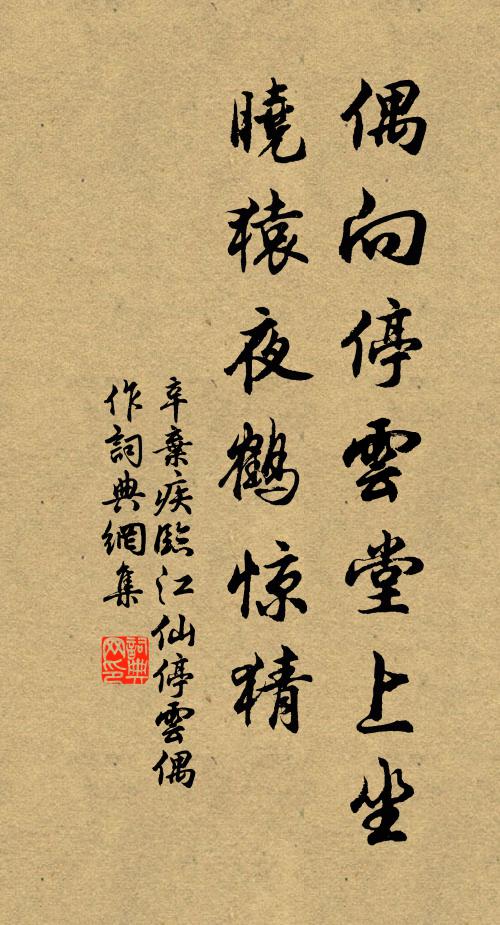 偶向停雲堂上坐
曉猿夜鶴惊猜
辛棄疾臨江仙停雲偶
作詞典網集
詞典網印